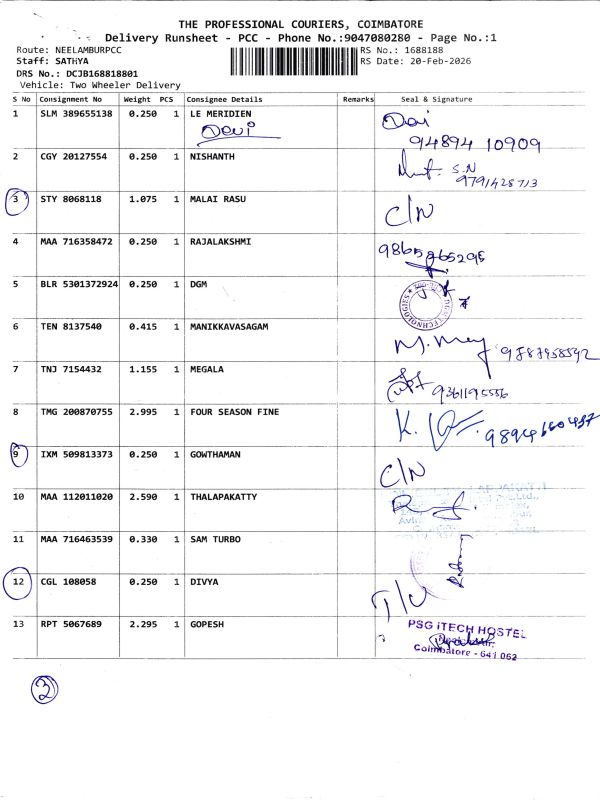 THE PROFESSIONAL COURIERS, COIMBATORE
Delivery Runsheet - PCC - Phone No.:9047080280 - Page No.:1
Route: NEELAMBURPCC RS No.: 1688188
Staff: SATHYA RS Date: 20-Feb-2026
DRS No.: DCJB168818801
Vehicle: Two Wheeler Delivery
S No Consignment No Weight PCS Consignee Details Remarks Seal & Signature
1 SLM 389655138 0.250 1 LE MERIDIEN Devi
Devi 94894 10909
2 CGY 20127554 0.250 1 NISHANTH S.N
9791428713
3 STY 8068118 1.075 1 MALAI RASU C/N
4 MAA 716358472 0.250 1 RAJALAKSHMI 9865865295
5 BLR 5301372924 0.250 1 DGM
6 TEN 8137540 0.415 1 MANIKKAVASAGAM
7 TNJ 7154432 1.155 1 MEGALA 9361195556
8 TMG 200870755 2.995 1 FOUR SEASON FINE K.
9 IXM 509813373 0.250 1 GOWTHAMAN C/N
10 MAA 112011020 2.590 1 THALAPAKATTY
11 MAA 716463539 0.330 1 SAM TURBO
12 CGL 108058 0.250 1 DIVYA
13 RPT 5067689 2.295 1 GOPESH PSG iTECH HOSTEL
Coimbatore - 641 062
3